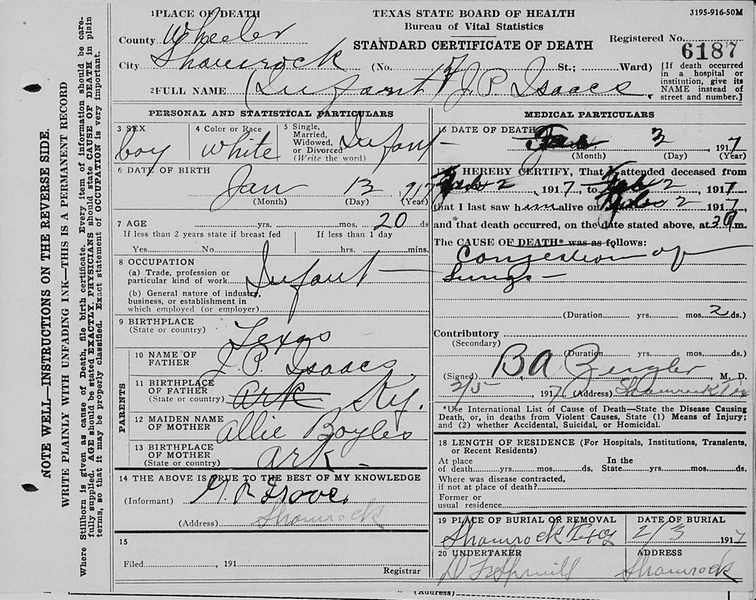 1 PLACE OF DEATH
TEXAS STATE BOARD OF HEALTH
3195-916-50M
Bureau of Vital Statistics
County Wheeler
STANDARD CERTIFICATE OF DEATH
Registered No.
6187
City Shamrock (No. St.; Ward)
[If death occurred in a hospital or institution, give its NAME instead of street and number.]
2 FULL NAME (Infant of J.P. Isaacs
PERSONAL AND STATISTICAL PARTICULARS
3 SEX
boy
4 Color or Race
White
5 Single, Married, Widowed, or Divorced (Write the word)
Infant
6 DATE OF BIRTH
Jan 13 917
(Month) (Day) (Year)
7 AGE yrs. mos. 20 ds.
If less than 2 years state if breast fed
If less than 1 day
Yes No hrs. mins.
8 OCCUPATION
(a) Trade, profession or particular kind of work
Infant
(b) General nature of industry, business, or establishment in which employed (or employer)
9 BIRTHPLACE
(State or country)
Texas
PARENTS
10 NAME OF FATHER
J. P. Isaacs
11 BIRTHPLACE OF FATHER
(State or country)
Ark Ky.
12 MAIDEN NAME OF MOTHER
Allie Boyles
13 BIRTHPLACE OF MOTHER
(State or country)
Ark
14 THE ABOVE IS TRUE TO THE BEST OF MY KNOWLEDGE
(Informant)
(Address) Shamrock
15
Filed , 191
Registrar
MEDICAL PARTICULARS
16 DATE OF DEATH
Feb 3 1917
(Month) (Day) (Year)
17 I HEREBY CERTIFY, That I attended deceased from
Feb 2, 1917, to Feb 2 1917
that I last saw him alive on Feb 2 1917
and that death occurred, on the date stated above, at m.
The CAUSE OF DEATH* was as follows:
Congestion of
Lungs
(Duration yrs. mos. 2 ds.)
Contributory
(Secondary)
(Duration yrs. mos. ds.)
(Signed) B.A. Zeigler M. D.
2/5 1917 (Address) Shamrock Tex
*Use International List of Cause of Death—State the Disease Causing Death, or, in deaths from Violent Causes, State (1) Means of Injury; and (2) whether Accidental, Suicidal, or Homicidal.
18 LENGTH OF RESIDENCE (For Hospitals, Institutions, Transients, or Recent Residents)
At place of death yrs. mos. ds.
In the State yrs. mos. ds.
Where was disease contracted, if not at place of death?
Former or usual residence
19 PLACE OF BURIAL OR REMOVAL
Shamrock Texas
DATE OF BURIAL
2/3 1917
20 UNDERTAKER
ADDRESS
Shamrock
(Address)
NOTE WELL—INSTRUCTIONS ON THE REVERSE SIDE.
WRITE PLAINLY WITH UNFADING INK—THIS IS A PERMANENT RECORD
Where Stillborn is given as cause of Death, file birth certificate. Every item of information should be carefully supplied. AGE should be stated EXACTLY. PHYSICIANS should state CAUSE OF DEATH in plain terms, so that it may be properly classified. Exact statement of OCCUPATION is very important.